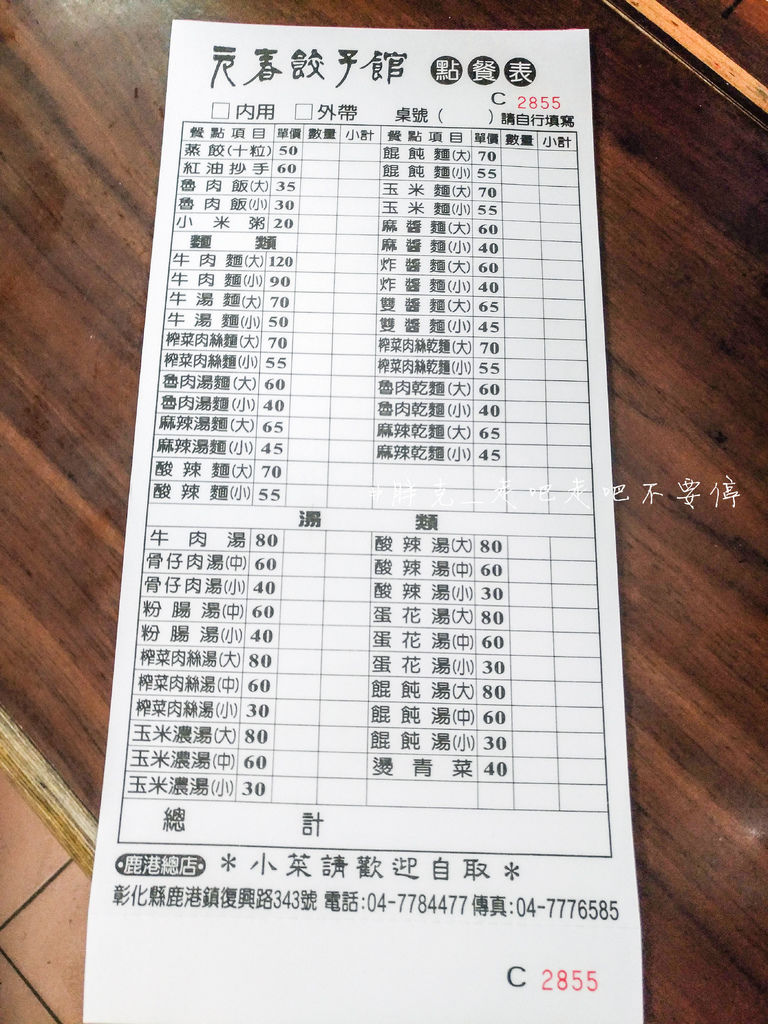 元春餃子館 點餐表
C 2855
□內用 □外帶 桌號( )請自行填寫
餐點項目 單價 數量 小計 餐點項目 單價 數量 小計
蒸餃(十粒) 50 餛飩麵(大) 70
紅油抄手 60 餛飩麵(小) 55
魯肉飯(大) 35 玉米麵(大) 70
魯肉飯(小) 30 玉米麵(小) 55
小米粥 20 麻醬麵(大) 60
麵類 麻醬麵(小) 40
牛肉麵(大) 120 炸醬麵(大) 60
牛肉麵(小) 90 炸醬麵(小) 40
牛湯麵(大) 70 雙醬麵(大) 65
牛湯麵(小) 50 雙醬麵(小) 45
榨菜肉絲麵(大) 70 榨菜肉絲乾麵(大) 70
榨菜肉絲麵(小) 55 榨菜肉絲乾麵(小) 55
魯肉湯麵(大) 60 魯肉乾麵(大) 60
魯肉湯麵(小) 40 魯肉乾麵(小) 40
麻辣湯麵(大) 65 麻辣乾麵(大) 65
麻辣湯麵(小) 45 麻辣乾麵(小) 45
酸辣麵(大) 70
酸辣麵(小) 55
#胖克_走吧走吧不要停
湯類
牛肉湯 80 酸辣湯(大) 80
骨仔肉湯(中) 60 酸辣湯(中) 60
骨仔肉湯(小) 40 酸辣湯(小) 30
粉腸湯(中) 60 蛋花湯(大) 80
粉腸湯(小) 40 蛋花湯(中) 60
榨菜肉絲湯(大) 80 蛋花湯(小) 30
榨菜肉絲湯(中) 60 餛飩湯(大) 80
榨菜肉絲湯(小) 30 餛飩湯(中) 60
玉米濃湯(大) 80 餛飩湯(小) 30
玉米濃湯(中) 60 燙青菜 40
玉米濃湯(小) 30
總計
•鹿港總店• *小菜請歡迎自取*
彰化縣鹿港鎮復興路343號 電話:04-7784477 傳真:04-7776585
C 2855